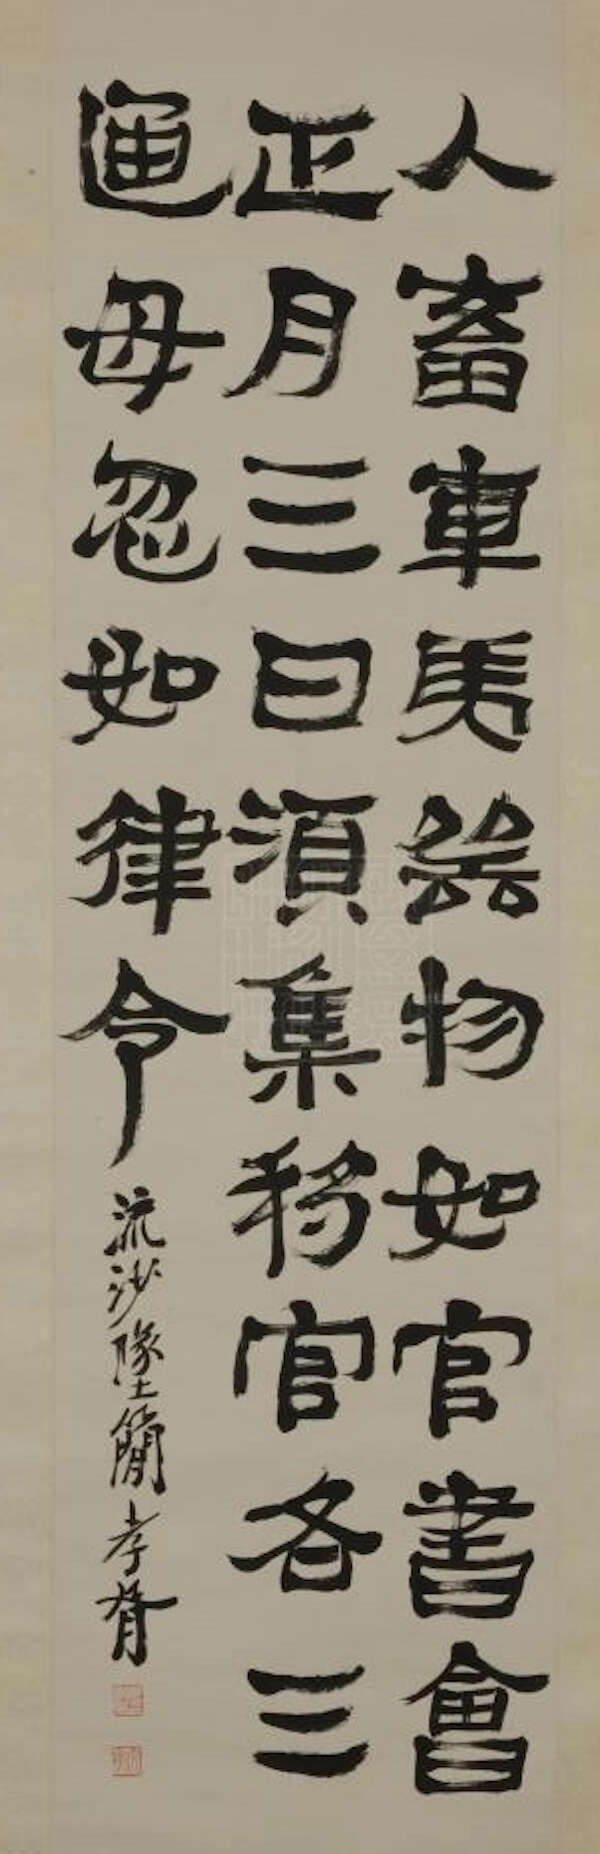 人畜車馬器物如官書會
正月三日須集移官各三
通毋忽如律令
流沙墜簡 孝胥